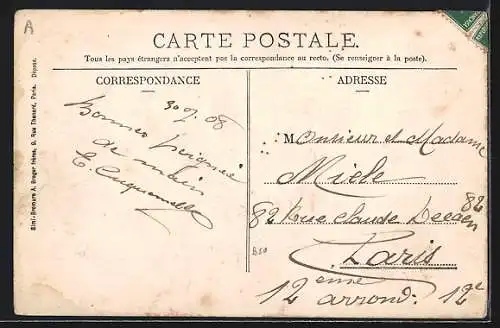 A
CARTE POSTALE.
Tous les pays étrangers n'acceptent pas la correspondance au recto. (Se renseigner à la poste).
CORRESPONDANCE
ADRESSE
Simi-Bromure A. Breger frères, 9, Rue Thenard, Paris. Déposé.
08
Bonnes Poignée
de main
Monsieur et Madame
Miele
82 Rue Claude Decaen 82
Paris
12 eme arrond. 12e
B50